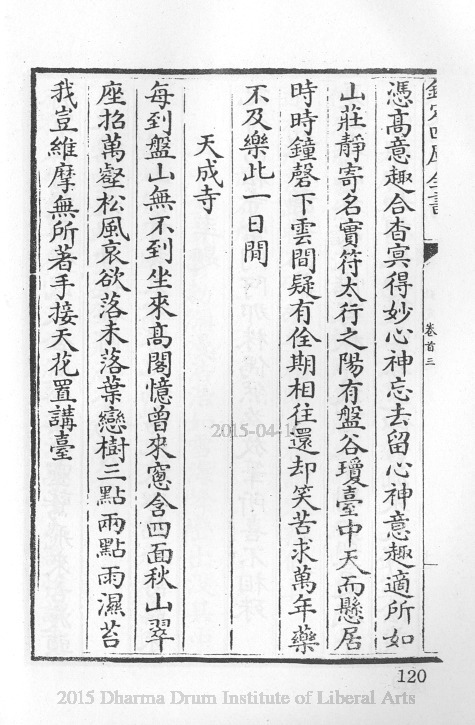 欽定四庫全書
卷首三
憑高意趣合杳冥得妙心神忘去留心神意趣適所如
山莊靜寄名實符太行之陽有盤谷瓊臺中天而懸居
時時鐘磬下雲間疑有佺期相往還却笑苦求萬年藥
不及樂此一日閒
天成寺
每到盤山無不到坐來高閣憶曾來窓含四面秋山翠
座招萬壑松風哀欲落未落葉戀樹三點兩點雨濕苔
我豈維摩無所著手接天花置講臺
2015-04-1
120
2015 Dharma Drum Institute of Liberal Arts